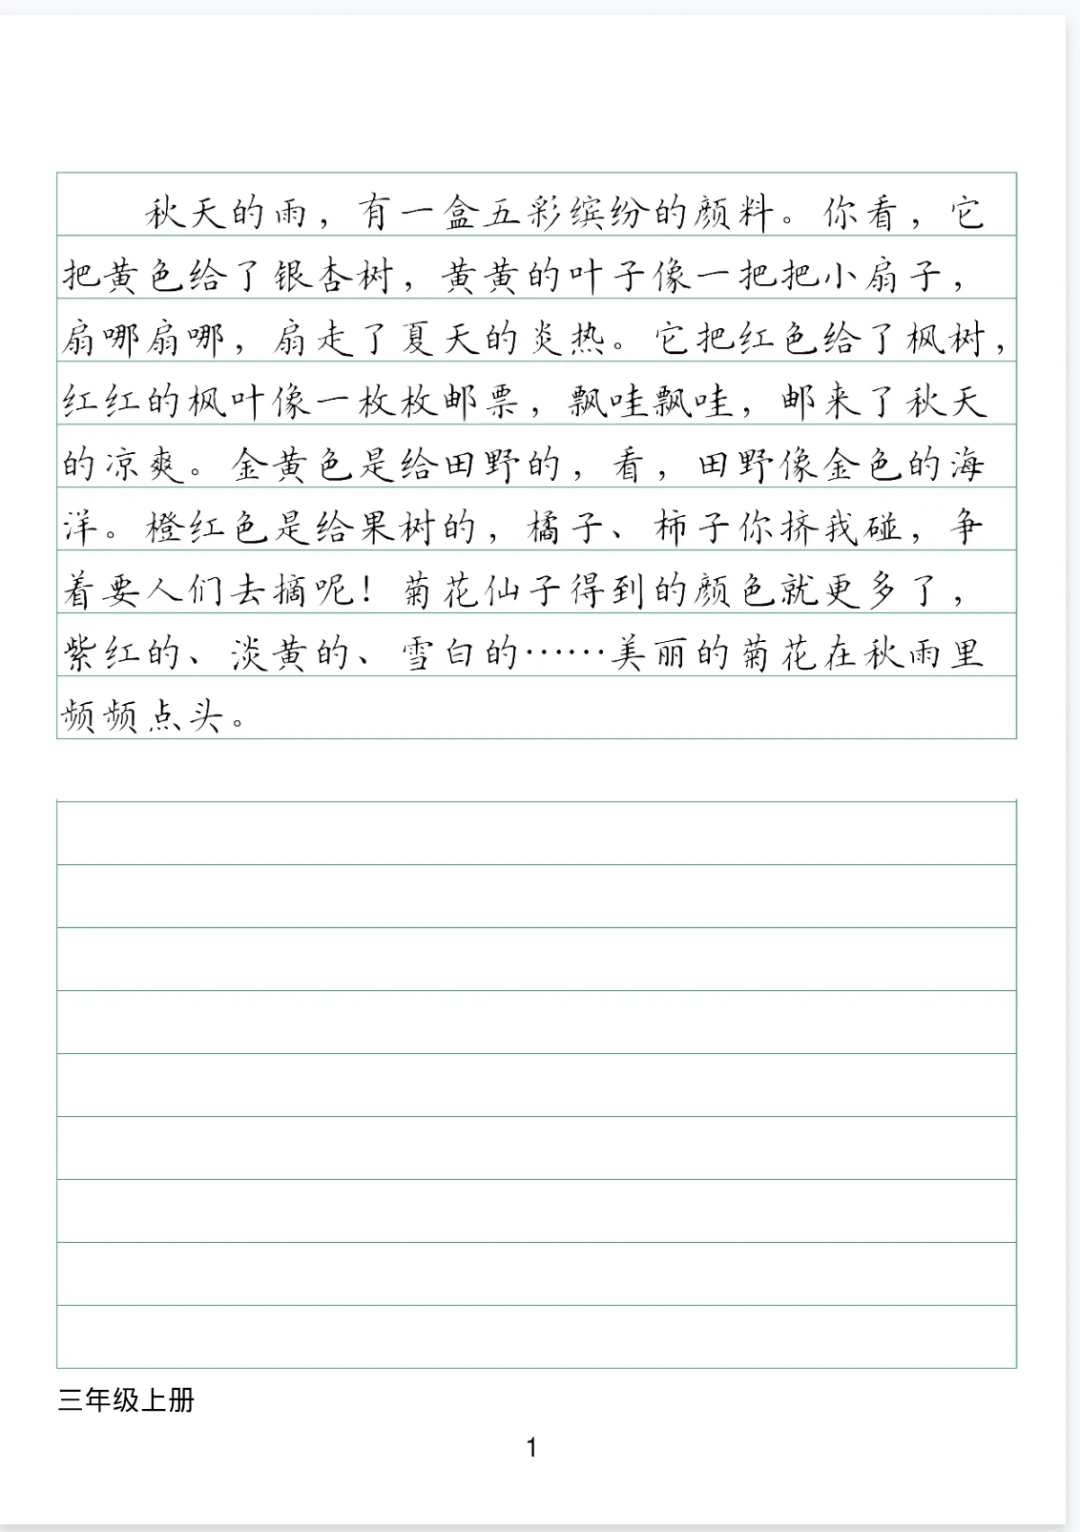 秋天的雨，有一盒五彩缤纷的颜料。你看，它
把黄色给了银杏树，黄黄的叶子像一把把小扇子，
扇哪扇哪，扇走了夏天的炎热。它把红色给了枫树，
红红的枫叶像一枚枚邮票，飘哇飘哇，邮来了秋天
的凉爽。金黄色是给田野的，看，田野像金色的海
洋。橙红色是给果树的，橘子、柿子你挤我碰，争
着要人们去摘呢！菊花仙子得到的颜色就更多了，
紫红的、淡黄的、雪白的……美丽的菊花在秋雨里
频频点头。
三年级上册
1